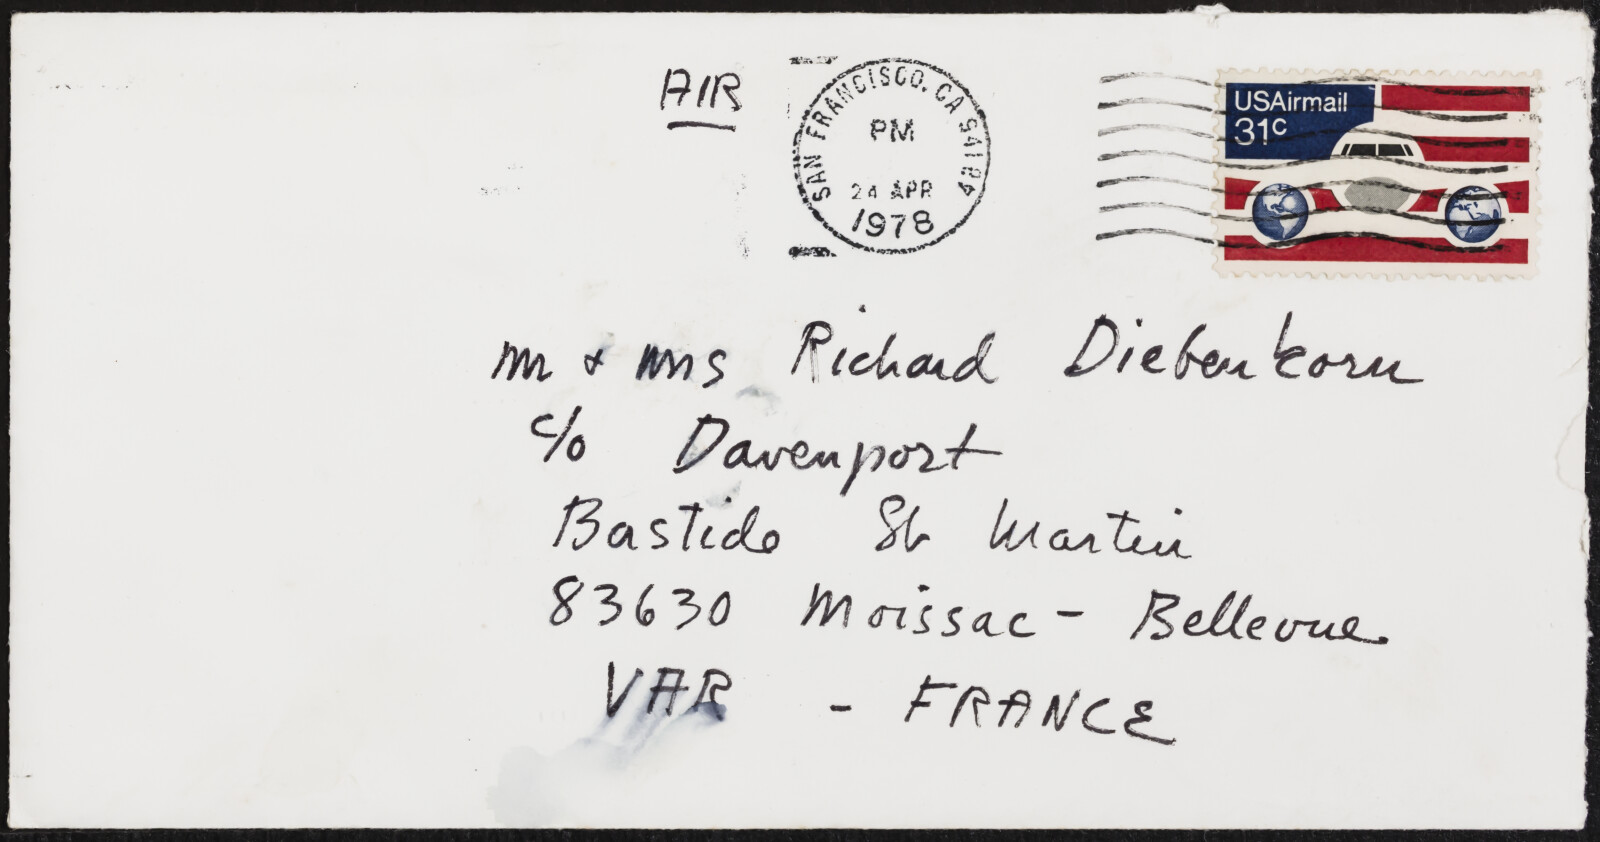 AIR
SAN FRANCISCO, CA 94184
PM
24 APR
1978
USAirmail
31c
Mr + Mrs Richard Diebenkorn
c/o Davenport
Bastide St Martin
83630 Moissac - Bellevue
VAR - FRANCE